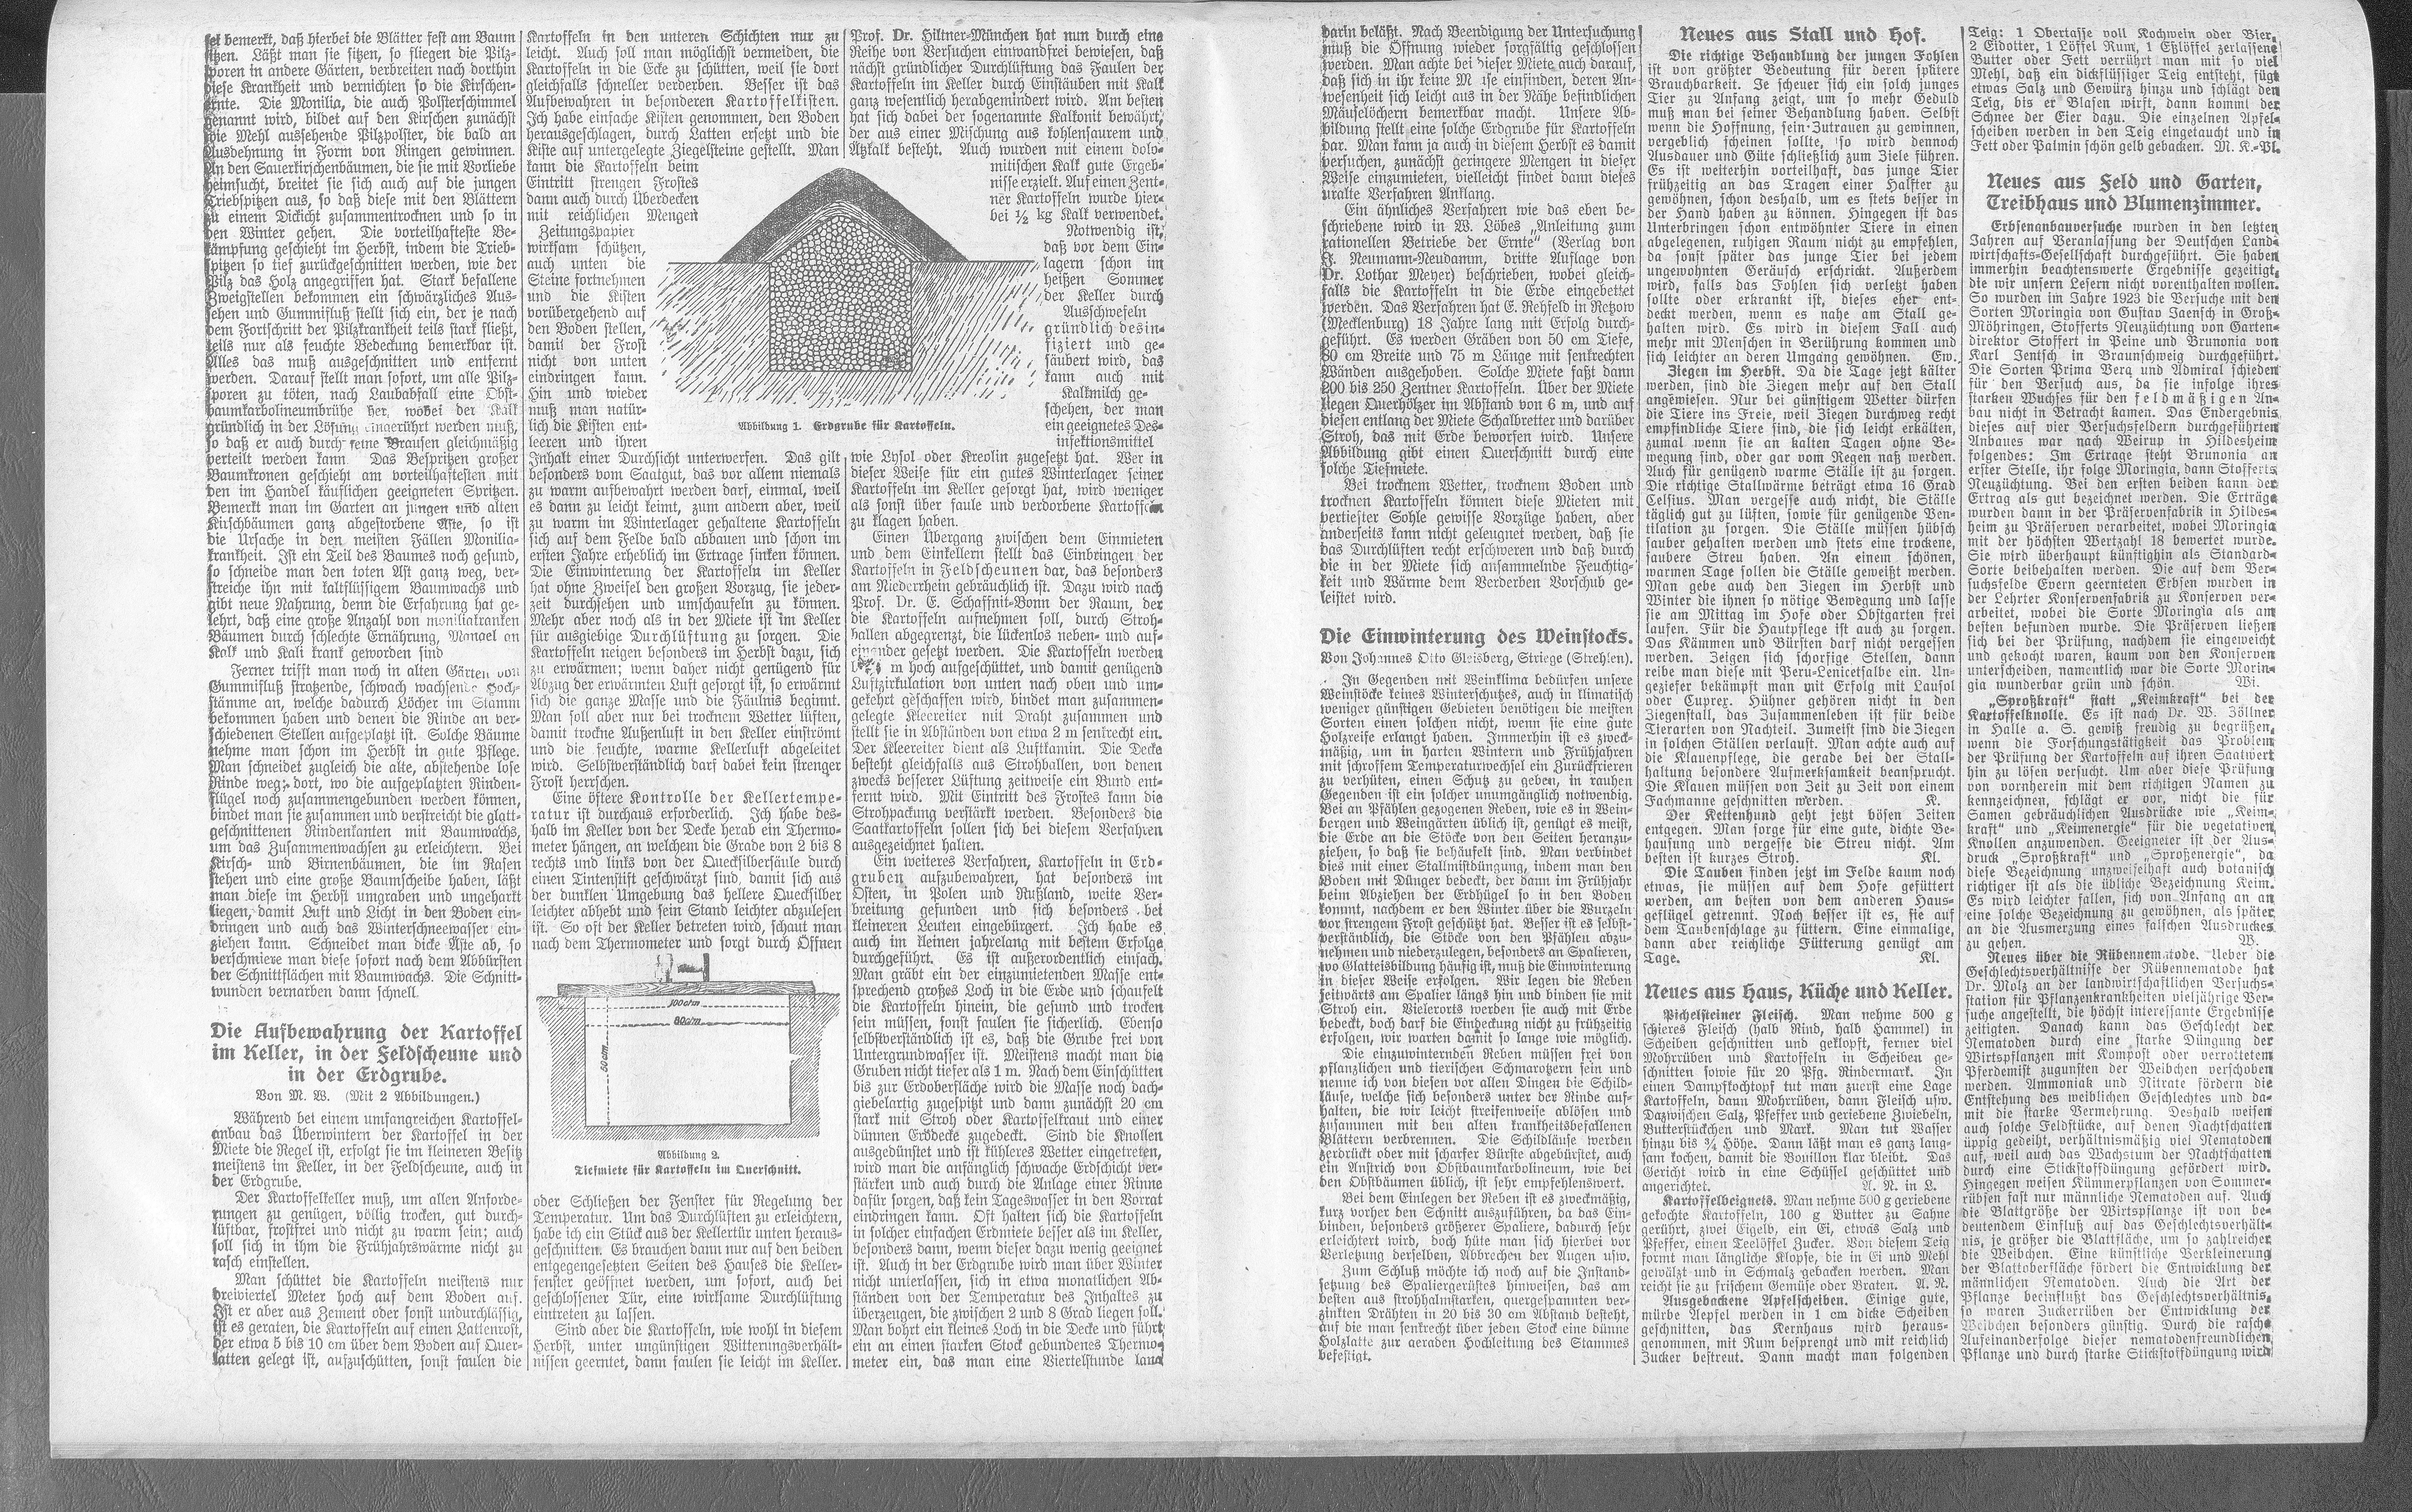 sei bemerkt, daß hierbei die Blätter fest am Baum
sitzen. Läßt man sie sitzen, so fliegen die Pilz-
sporen in andere Gärten, verbreiten nach dorthin
diese Krankheit und vernichten so die Kirschen-
ernte. Die Monilia, die auch Polsterschimmel
genannt wird, bildet auf den Kirschen zunächst
wie Mehl aussehende Pilzpolster, die bald an
Ausdehnung in Form von Ringen gewinnen.
An den Sauerkirschenbäumen, die sie mit Vorliebe
heimsucht, breitet sie sich auch auf die jungen
Triebspitzen aus, so daß diese mit den Blättern
zu einem Dickicht zusammentrocknen und so in
den Winter gehen. Die vorteilhafteste Be-
kämpfung geschieht im Herbst, indem die Trieb-
spitzen so tief zurückgeschnitten werden, wie der
Pilz das Holz angegriffen hat. Stark befallene
Zweigstellen bekommen ein schwärzliches Aus-
sehen und Gummifluß stellt sich ein, der je nach
dem Fortschritt der Pilzkrankheit teils stark fließt,
teils nur als feuchte Bedeckung bemerkbar ist.
Alles das muß ausgeschnitten und entfernt
werden. Darauf stellt man sofort, um alle Pilz-
sporen zu töten, nach Laubabfall eine Obst-
baumkarbolineumbrühe her, wobei der Kalk
gründlich in der Lösung eingerührt werden muß,
so daß er auch durch feine Brausen gleichmäßig
verteilt werden kann Das Bespritzen großer
Baumkronen geschieht am vorteilhaftesten mit
den im Handel käuflichen geeigneten Spritzen.
Bemerkt man im Garten an jungen und alten
Kirschbäumen ganz abgestorbene Äste, so ist
die Ursache in den meisten Fällen Monilia-
krankheit. Ist ein Teil des Baumes noch gesund,
so schneide man den toten Ast ganz weg, ver-
streiche ihn mit kaltflüssigem Baumwachs und
gibt neue Nahrung, denn die Erfahrung hat ge-
lehrt, daß eine große Anzahl von moniliakranken
Bäumen durch schlechte Ernährung, Mangel an
Kalk und Kali krank geworden sind
Ferner trifft man noch in alten Gärten von
Gummifluß strotzende, schwach wachsende Hoch-
stämme an, welche dadurch Löcher im Stamm
bekommen haben und denen die Rinde an ver-
schiedenen Stellen aufgeplatzt ist. Solche Bäume
nehme man schon im Herbst in gute Pflege.
Man schneidet zugleich die alte, abstehende lose
Rinde weg; dort, wo die aufgeplatzten Rinden-
flügel noch zusammengebunden werden können,
bindet man sie zusammen und verstreicht die glatt-
geschnittenen Rindenkanten mit Baumwachs,
um das Zusammenwachsen zu erleichtern. Bei
Kirsch- und Birnenbäumen, die im Rasen
stehen und eine große Baumscheibe haben, läßt
man diese im Herbst umgraben und ungeharkt
liegen, damit Luft und Licht in den Boden ein-
dringen und auch das Winterschneewasser ein-
ziehen kann. Schneidet man dicke Äste ab, so
verschmiere man diese sofort nach dem Abbürsten
der Schnittflächen mit Baumwachs. Die Schnitt-
wunden vernarben dann schnell.
Die Aufbewahrung der Kartoffel
im Keller, in der Feldscheune und
in der Erdgrube.
Von M. W. (Mit 2 Abbildungen.)
Während bei einem umfangreichen Kartoffel-
anbau das Überwintern der Kartoffel in der
Miete die Regel ist, erfolgt sie im kleineren Besitz
meistens im Keller, in der Feldscheune, auch in
der Erdgrube.
Der Kartoffelkeller muß, um allen Anforde-
rungen zu genügen, völlig trocken, gut durch-
lüftbar, frostfrei und nicht zu warm sein; auch
soll sich in ihm die Frühjahrswärme nicht zu
rasch einstellen.
Man schüttet die Kartoffeln meistens nur
dreiviertel Meter hoch auf dem Boden auf.
Ist er aber aus Zement oder sonst undurchlässig,
ist es geraten, die Kartoffeln auf einen Lattenrost,
der etwa 5 bis 10 cm über dem Boden auf Quer-
latten gelegt ist, aufzuschütten, sonst faulen die
Kartoffeln in den unteren Schichten nur zu
leicht. Auch soll man möglichst vermeiden, die
Kartoffeln in die Ecke zu schütten, weil sie dort
gleichfalls schneller verderben. Besser ist das
Aufbewahren in besonderen Kartoffelkisten.
Ich habe einfache Kisten genommen, den Boden
herausgeschlagen, durch Latten ersetzt und die
Kiste auf untergelegte Ziegelsteine gestellt. Man
kann die Kartoffeln beim
Eintritt strengen Frostes
dann auch durch Überdecken
mit reichlichen Mengen
Zeitungspapier
wirksam schützen,
auch unten die
Steine fortnehmen
und die Kisten
vorübergehend auf
den Boden stellen,
damit der Frost
nicht von unten
eindringen kann.
Hin und wieder
muß man natür-
lich die Kisten ent-
leeren und ihren
Inhalt einer Durchsicht unterwerfen. Das gilt
besonders vom Saatgut, das vor allem niemals
zu warm aufbewahrt werden darf, einmal, weil
es dann zu leicht keimt, zum andern aber, weil
zu warm im Winterlager gehaltene Kartoffeln
sich auf dem Felde bald abbauen und schon im
ersten Jahre erheblich im Ertrage sinken können.
Die Einwinterung der Kartoffeln im Keller
hat ohne Zweifel den großen Vorzug, sie jeder-
zeit durchsehen und umschaufeln zu können.
Mehr aber noch als in der Miete ist im Keller
für ausgiebige Durchlüftung zu sorgen. Die
Kartoffeln neigen besonders im Herbst dazu, sich
zu erwärmen; wenn daher nicht genügend für
Abzug der erwärmten Luft gesorgt ist, so erwärmt
sich die ganze Masse und die Fäulnis beginnt.
Man soll aber nur bei trocknem Wetter lüften,
damit trockne Außenluft in den Keller einströmt
und die feuchte, warme Kellerluft abgeleitet
wird. Selbstverständlich darf dabei kein strenger
Frost herrschen.
Eine öftere Kontrolle der Kellertempe-
ratur ist durchaus erforderlich. Ich habe des-
halb im Keller von der Decke herab ein Thermo-
meter hängen, an welchem die Grade von 2 bis 8
rechts und links von der Quecksilbersäule durch
einen Tintenstift geschwärzt sind, damit sich aus
der dunklen Umgebung das hellere Quecksilber
leichter abhebt und sein Stand leichter abzulesen
ist. So oft der Keller betreten wird, schaut man
nach dem Thermometer und sorgt durch Öffnen
100cm
80cm
50cm
Abbildung 2.
Tiefmiete für Kartoffeln im Querschnitt.
oder Schließen der Fenster für Regelung der
Temperatur. Um das Durchlüften zu erleichtern,
habe ich ein Stück aus der Kellertür unten heraus-
geschnitten. Es brauchen dann nur auf den beiden
entgegengesetzten Seiten des Hauses die Keller-
fenster geöffnet werden, um sofort, auch bei
geschlossener Tür, eine wirksame Durchlüftung
eintreten zu lassen.
Sind aber die Kartoffeln, wie wohl in diesem
Herbst, unter ungünstigen Witterungsverhält-
nissen geerntet, dann faulen sie leicht im Keller.
Prof. Dr. Hiltner-München hat nun durch eine
Reihe von Versuchen einwandfrei bewiesen, daß
nächst gründlicher Durchlüftung das Faulen der
Kartoffeln im Keller durch Einstäuben mit Kalk
ganz wesentlich herabgemindert wird. Am besten
hat sich dabei der sogenannte Kalkonit bewährt,
der aus einer Mischung aus kohlensaurem und
Ätzkalk besteht. Auch wurden mit einem dolo-
mitischen Kalk gute Ergeb-
nisse erzielt. Auf einen Zent-
ner Kartoffeln wurde hier-
bei ½ kg Kalk verwendet.
Notwendig ist,
daß vor dem Ein-
lagern schon im
heißen Sommer
der Keller durch
Ausschwefeln
gründlich desin-
fiziert und ge-
säubert wird, das
kann auch mit
Kalkmilch ge-
schehen, der man
ein geeignetes Des-
infektionsmittel
Abbildung 1. Erdgrube für Kartoffeln.
wie Lysol oder Kreolin zugesetzt hat. Wer in
dieser Weise für ein gutes Winterlager seiner
Kartoffeln im Keller gesorgt hat, wird weniger
als sonst über faule und verdorbene Kartoffeln
zu klagen haben.
Einen Übergang zwischen dem Einmieten
und dem Einkellern stellt das Einbringen der
Kartoffeln in Feldscheunen dar, das besonders
am Niederrhein gebräuchlich ist. Dazu wird nach
Prof. Dr. E. Schaffnit-Bonn der Raum, der
die Kartoffeln aufnehmen soll, durch Stroh-
ballen abgegrenzt, die lückenlos neben- und auf-
einander gesetzt werden. Die Kartoffeln werden
m hoch aufgeschüttet, und damit genügend
Luftzirkulation von unten nach oben und um-
gekehrt geschaffen wird, bindet man zusammen-
gelegte Kleereiter mit Draht zusammen und
stellt sie in Abständen von etwa 2 m senkrecht ein.
Der Kleereiter dient als Luftkamin. Die Decke
besteht gleichfalls aus Strohballen, von denen
zwecks besserer Lüftung zeitweise ein Bund ent-
fernt wird. Mit Eintritt des Frostes kann die
Strohpackung verstärkt werden. Besonders die
Saatkartoffeln sollen sich bei diesem Verfahren
ausgezeichnet halten.
Ein weiteres Verfahren, Kartoffeln in Erd-
gruben aufzubewahren, hat besonders im
Osten, in Polen und Rußland, weite Ver-
breitung gefunden und sich besonders bei
kleineren Leuten eingebürgert. Ich habe es
auch im kleinen jahrelang mit bestem Erfolge
durchgeführt. Es ist außerordentlich einfach.
Man gräbt ein der einzumietenden Masse ent-
sprechend großes Loch in die Erde und schaufelt
die Kartoffeln hinein, die gesund und trocken
sein müssen, sonst faulen sie sicherlich. Ebenso
selbstverständlich ist es, daß die Grube frei von
Untergrundwasser ist. Meistens macht man die
Gruben nicht tiefer als 1 m. Nach dem Einschütten
bis zur Erdoberfläche wird die Masse noch dach-
giebelartig zugespitzt und dann zunächst 20 cm
stark mit Stroh oder Kartoffelkraut und einer
dünnen Erddecke zugedeckt. Sind die Knollen
ausgedünstet und ist kühleres Wetter eingetreten,
wird man die anfänglich schwache Erdschicht ver-
stärken und auch durch die Anlage einer Rinne
dafür sorgen, daß kein Tageswasser in den Vorrat
eindringen kann. Oft halten sich die Kartoffeln
in solcher einfachen Erdmiete besser als im Keller,
besonders dann, wenn dieser dazu wenig geeignet
ist. Auch in der Erdgrube wird man über Winter
nicht unterlassen, sich in etwa monatlichen Ab-
ständen von der Temperatur des Inhaltes zu
überzeugen, die zwischen 2 und 8 Grad liegen soll.
Man bohrt ein kleines Loch in die Decke und führt
ein an einen starken Stock gebundenes Thermo-
meter ein, das man eine Viertelstunde lang
darin beläßt. Nach Beendigung der Untersuchung
muß die Öffnung wieder sorgfältig geschlossen
werden. Man achte bei dieser Miete auch darauf,
daß sich in ihr keine Mäuse einfinden, deren An-
wesenheit sich leicht aus in der Nähe befindlichen
Mäuselöchern bemerkbar macht. Unsere Ab-
bildung stellt eine solche Erdgrube für Kartoffeln
dar. Man kann ja auch in diesem Herbst es damit
versuchen, zunächst geringere Mengen in dieser
Weise einzumieten, vielleicht findet dann dieses
uralte Verfahren Anklang.
Ein ähnliches Verfahren wie das eben be-
schriebene wird in W. Löbes „Anleitung zum
rationellen Betriebe der Ernte“ (Verlag von
J. Neumann-Neudamm, dritte Auflage von
Dr. Lothar Meyer) beschrieben, wobei gleich-
falls die Kartoffeln in die Erde eingebettet
werden. Das Verfahren hat E. Rehfeld in Retzow
(Mecklenburg) 18 Jahre lang mit Erfolg durch-
geführt. Es werden Gräben von 50 cm Tiefe,
80 cm Breite und 75 m Länge mit senkrechten
Wänden ausgehoben. Solche Miete faßt dann
200 bis 250 Zentner Kartoffeln. Über der Miete
liegen Querhölzer im Abstand von 6 m, und auf
diesen entlang der Miete Schalbretter und darüber
Stroh, das mit Erde beworfen wird. Unsere
Abbildung gibt einen Querschnitt durch eine
solche Tiefmiete.
Bei trocknem Wetter, trocknem Boden und
trocknen Kartoffeln können diese Mieten mit
vertiefter Sohle gewisse Vorzüge haben, aber
anderseits kann nicht geleugnet werden, daß sie
das Durchlüften recht erschweren und daß durch
die in der Miete sich ansammelnde Feuchtig-
keit und Wärme dem Verderben Vorschub ge-
leistet wird.
Die Einwinterung des Weinstocks.
Von Johannes Otto Gleisberg, Striege (Strehlen).
In Gegenden mit Weinklima bedürfen unsere
Weinstöcke keines Winterschutzes, auch in klimatisch
weniger günstigen Gebieten benötigen die meisten
Sorten einen solchen nicht, wenn sie eine gute
Holzreife erlangt haben. Immerhin ist es zweck-
mäßig, um in harten Wintern und Frühjahren
mit schroffem Temperaturwechsel ein Zurückfrieren
zu verhüten, einen Schutz zu geben, in rauhen
Gegenden ist ein solcher unumgänglich notwendig.
Bei an Pfählen gezogenen Reben, wie es in Wein-
bergen und Weingärten üblich ist, genügt es meist,
die Erde an die Stöcke von den Seiten heranzu-
ziehen, so daß sie behäufelt sind. Man verbindet
dies mit einer Stallmistdüngung, indem man den
Boden mit Dünger bedeckt, der dann im Frühjahr
beim Abziehen der Erdhügel so in den Boden
kommt, nachdem er den Winter über die Wurzeln
vor strengem Frost geschützt hat. Besser ist es selbst-
verständlich, die Stöcke von den Pfählen abzu-
nehmen und niederzulegen, besonders an Spalieren,
wo Glatteisbildung häufig ist, muß die Einwinterung
in dieser Weise erfolgen. Wir legen die Reben
seitwärts am Spalier längs hin und binden sie mit
Stroh ein. Vielerorts werden sie auch mit Erde
bedeckt, doch darf die Eindeckung nicht zu frühzeitig
erfolgen, wir warten damit so lange wie möglich.
Die einzuwinternden Reben müssen frei von
pflanzlichen und tierischen Schmarotzern sein und
nenne ich von diesen vor allen Dingen die Schild-
läuse, welche sich besonders unter der Rinde auf-
halten, die wir leicht streifenweise ablösen und
zusammen mit den alten krankheitsbefallenen
Blättern verbrennen. Die Schildläuse werden
zerdrückt oder mit scharfer Bürste abgebürstet, auch
ein Anstrich von Obstbaumkarbolineum, wie bei
den Obstbäumen üblich, ist sehr empfehlenswert.
Bei dem Einlegen der Reben ist es zweckmäßig,
kurz vorher den Schnitt auszuführen, da das Ein-
binden, besonders größerer Spaliere, dadurch sehr
erleichtert wird, doch hüte man sich hierbei vor
Verletzung derselben, Abbrechen der Augen usw.
Zum Schluß möchte ich noch auf die Instand-
setzung des Spaliergerüstes hinweisen, das am
besten aus strohhalmstarken, quergespannten ver-
zinkten Drähten in 20 bis 30 cm Abstand besteht,
auf die man senkrecht über jeden Stock eine dünne
Holzlatte zur geraden Hochleitung des Stammes
befestigt.
Neues aus Stall und Hof.
Die richtige Behandlung der jungen Fohlen
ist von größter Bedeutung für deren spätere
Brauchbarkeit. Je scheuer sich ein solch junges
Tier zu Anfang zeigt, um so mehr Geduld
muß man bei seiner Behandlung haben. Selbst
wenn die Hoffnung, sein Zutrauen zu gewinnen,
vergeblich scheinen sollte, so wird dennoch
Ausdauer und Güte schließlich zum Ziele führen.
Es ist weiterhin vorteilhaft, das junge Tier
frühzeitig an das Tragen einer Halfter zu
gewöhnen, schon deshalb, um es stets besser in
der Hand haben zu können. Hingegen ist das
Unterbringen schon entwöhnter Tiere in einen
abgelegenen, ruhigen Raum nicht zu empfehlen,
da sonst später das junge Tier bei jedem
ungewohnten Geräusch erschrickt. Außerdem
wird, falls das Fohlen sich verletzt haben
sollte oder erkrankt ist, dieses eher ent-
deckt werden, wenn es nahe am Stall ge-
halten wird. Es wird in diesem Fall auch
mehr mit Menschen in Berührung kommen und
sich leichter an deren Umgang gewöhnen. Ew.
Ziegen im Herbst. Da die Tage jetzt kälter
werden, sind die Ziegen mehr auf den Stall
angewiesen. Nur bei günstigem Wetter dürfen
die Tiere ins Freie, weil Ziegen durchweg recht
empfindliche Tiere sind, die sich leicht erkälten,
zumal wenn sie an kalten Tagen ohne Be-
wegung sind, oder gar vom Regen naß werden.
Auch für genügend warme Ställe ist zu sorgen.
Die richtige Stallwärme beträgt etwa 16 Grad
Celsius. Man vergesse auch nicht, die Ställe
täglich gut zu lüften, sowie für genügende Ven-
tilation zu sorgen. Die Ställe müssen hübsch
sauber gehalten werden und stets eine trockene,
saubere Streu haben. An einem schönen,
warmen Tage sollen die Ställe geweißt werden.
Man gebe auch den Ziegen im Herbst und
Winter die ihnen so nötige Bewegung und lasse
sie am Mittag im Hofe oder Obstgarten frei
laufen. Für die Hautpflege ist auch zu sorgen.
Das Kämmen und Bürsten darf nicht vergessen
werden. Zeigen sich schorfige Stellen, dann
reibe man diese mit Peru-Lenicetsalbe ein. Un-
geziefer bekämpft man mit Erfolg mit Lausol
oder Cuprex. Hühner gehören nicht in den
Ziegenstall, das Zusammenleben ist für beide
Tierarten von Nachteil. Zumeist sind die Ziegen
in solchen Ställen verlaust. Man achte auch auf
die Klauenpflege, die gerade bei der Stall-
haltung besondere Aufmerksamkeit beansprucht.
Die Klauen müssen von Zeit zu Zeit von einem
Fachmanne geschnitten werden. K.
Der Kettenhund geht jetzt bösen Zeiten
entgegen. Man sorge für eine gute, dichte Be-
hausung und vergesse die Streu nicht. Am
besten ist kurzes Stroh. Kl.
Die Tauben finden jetzt im Felde kaum noch
etwas, sie müssen auf dem Hofe gefüttert
werden, am besten von dem anderen Haus-
geflügel getrennt. Noch besser ist es, sie auf
dem Taubenschlage zu füttern. Eine einmalige,
dann aber reichliche Fütterung genügt am
Tage. Kl.
Neues aus Haus, Küche und Keller.
Pichelsteiner Fleisch. Man nehme 500 g
schieres Fleisch (halb Rind, halb Hammel) in
Scheiben geschnitten und geklopft, ferner viel
Mohrrüben und Kartoffeln in Scheiben ge-
schnitten sowie für 20 Pfg. Rindermark. In
einen Dampfkochtopf tut man zuerst eine Lage
Kartoffeln, dann Mohrrüben, dann Fleisch usw.
Dazwischen Salz, Pfeffer und geriebene Zwiebeln,
Butterstückchen und Mark. Man tut Wasser
hinzu bis ¾ Höhe. Dann läßt man es ganz lang-
sam kochen, damit die Bouillon klar bleibt. Das
Gericht wird in eine Schüssel geschüttet und
angerichtet. A. N. in L.
Kartoffelbeignets. Man nehme 500 g geriebene
gekochte Kartoffeln, 160 g Butter zu Sahne
gerührt, zwei Eigelb, ein Ei, etwas Salz und
Pfeffer, einen Teelöffel Zucker. Von diesem Teig
formt man längliche Klopse, die in Ei und Mehl
gewälzt und in Schmalz gebacken werden. Man
reicht sie zu frischem Gemüse oder Braten. A. N.
Ausgebackene Apfelscheiben. Einige gute,
mürbe Aepfel werden in 1 cm dicke Scheiben
geschnitten, das Kernhaus wird heraus-
genommen, mit Rum besprengt und mit reichlich
Zucker bestreut. Dann macht man folgenden
Teig: 1 Obertasse voll Kochwein oder Bier,
2 Eidotter, 1 Löffel Rum, 1 Eßlöffel zerlassene
Butter oder Fett verrührt man mit so viel
Mehl, daß ein dickflüssiger Teig entsteht, fügt
etwas Salz und Gewürz hinzu und schlägt den
Teig, bis er Blasen wirft, dann kommt der
Schnee der Eier dazu. Die einzelnen Apfel-
scheiben werden in den Teig eingetaucht und in
Fett oder Palmin schön gelb gebacken. M. K.-Pl.
Neues aus Feld und Garten,
Treibhaus und Blumenzimmer.
Erbsenanbauversuche wurden in den letzten
Jahren auf Veranlassung der Deutschen Land-
wirtschafts-Gesellschaft durchgeführt. Sie haben
immerhin beachtenswerte Ergebnisse gezeitigt,
die wir unsern Lesern nicht vorenthalten wollen.
So wurden im Jahre 1923 die Versuche mit den
Sorten Moringia von Gustav Jaensch in Groß-
Möhringen, Stofferts Neuzüchtung von Garten-
direktor Stoffert in Peine und Brunonia von
Karl Jentsch in Braunschweig durchgeführt.
Die Sorten Prima Vera und Admiral schieden
für den Versuch aus, da sie infolge ihres
starken Wuchses für den feldmäßigen An-
bau nicht in Betracht kamen. Das Endergebnis
dieses auf vier Versuchsfeldern durchgeführten
Anbaues war nach Weirup in Hildesheim
folgendes: Im Ertrage steht Brunonia an
erster Stelle, ihr folge Moringia, dann Stofferts
Neuzüchtung. Bei den ersten beiden kann der
Ertrag als gut bezeichnet werden. Die Erträge
wurden dann in der Präservenfabrik in Hildes-
heim zu Präserven verarbeitet, wobei Moringia
mit der höchsten Wertzahl 18 bewertet wurde.
Sie wird überhaupt künftighin als Standard-
Sorte beibehalten werden. Die auf dem Ver-
suchsfelde Evern geernteten Erbsen wurden in
der Lehrter Konservenfabrik zu Konserven ver-
arbeitet, wobei die Sorte Moringia als am
besten befunden wurde. Die Präserven ließen
sich bei der Prüfung, nachdem sie eingeweicht
und gekocht waren, kaum von den Konserven
unterscheiden, namentlich war die Sorte Morin-
gia wunderbar grün und schön. Wi.
„Sproßkraft“ statt „Keimkraft“ bei der
Kartoffelknolle. Es ist nach Dr. W. Zöllner
in Halle a. S. gewiß freudig zu begrüßen,
wenn die Forschungstätigkeit das Problem
der Prüfung der Kartoffeln auf ihren Saatwert
hin zu lösen versucht. Um aber diese Prüfung
von vornherein mit dem richtigen Namen zu
kennzeichnen, schlägt er vor, nicht die für
Samen gebräuchlichen Ausdrücke wie „Keim-
kraft“ und „Keimenergie“ für die vegetativen
Knollen anzuwenden. Geeigneter ist der Aus-
druck „Sproßkraft“ und „Sproßenergie“, da
diese Bezeichnung unzweifelhaft auch botanisch
richtiger ist als die übliche Bezeichnung Keim.
Es wird leichter fallen, sich von Anfang an an
eine solche Bezeichnung zu gewöhnen, als später
an die Ausmerzung eines falschen Ausdruckes
zu gehen. W.
Neues über die Rübennematode. Ueber die
Geschlechtsverhältnisse der Rübennematode hat
Dr. Molz an der landwirtschaftlichen Versuchs-
station für Pflanzenkrankheiten vieljährige Ver-
suche angestellt, die höchst interessante Ergebnisse
zeitigten. Danach kann das Geschlecht der
Nematoden durch eine starke Düngung der
Wirtspflanzen mit Kompost oder verrottetem
Pferdemist zugunsten der Weibchen verschoben
werden. Ammoniak und Nitrate fördern die
Entstehung des weiblichen Geschlechtes und da-
mit die starke Vermehrung. Deshalb weisen
auch solche Feldstücke, auf denen Nachtschatten
üppig gedeiht, verhältnismäßig viel Nematoden
auf, weil auch das Wachstum der Nachtschatten
durch eine Stickstoffdüngung gefördert wird.
Hingegen weisen Kümmerpflanzen von Sommer-
rübsen fast nur männliche Nematoden auf. Auch
die Blattgröße der Wirtspflanze ist von be-
deutendem Einfluß auf das Geschlechtsverhält-
nis, je größer die Blattfläche, um so zahlreicher
die Weibchen. Eine künstliche Verkleinerung
der Blattoberfläche fördert die Entwicklung der
männlichen Nematoden. Auch die Art der
Pflanze beeinflußt das Geschlechtsverhältnis,
so waren Zuckerrüben der Entwicklung der
Weibchen besonders günstig. Durch die rasche
Aufeinanderfolge dieser nematodenfreundlichen
Pflanze und durch starke Stickstoffdüngung wird